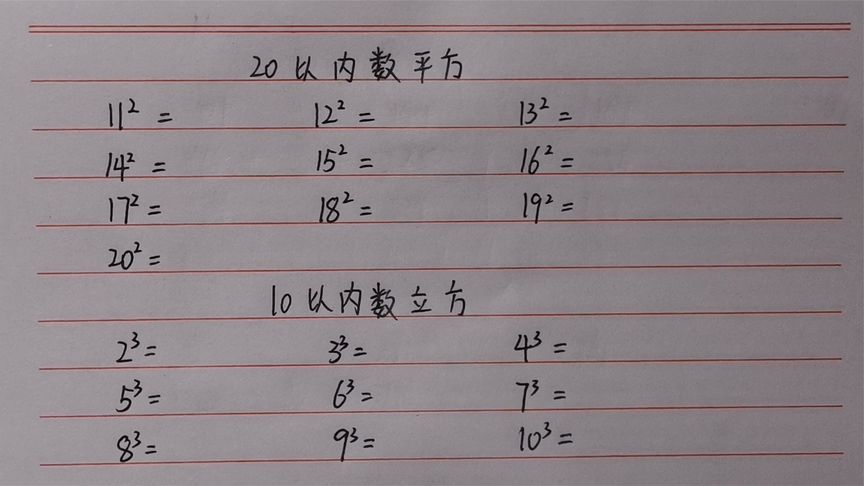 20以内数平方
11² = 12² = 13² =
14² = 15² = 16² =
17² = 18² = 19² =
20² =
10以内数立方
2³ = 3³ = 4³ =
5³ = 6³ = 7³ =
8³ = 9³ = 10³ =